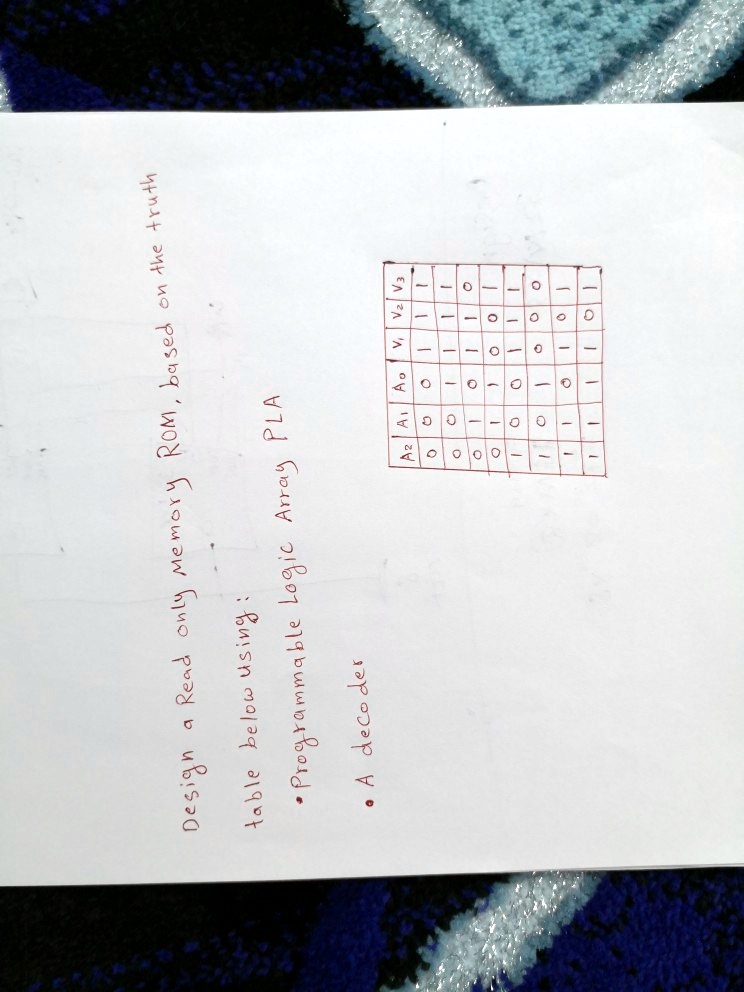 Design a Read only Memory ROM, based on the truth
table below using:
• Programmable Logic Array PLA
• A decoder
A2 A1 A0 V1 V2 V3
0 0 0 1 1 1
0 0 1 1 1 1
0 1 0 1 1 0
0 1 1 0 0 1
1 0 0 1 1 1
1 0 1 0 0 0
1 1 0 1 0 1
1 1 1 1 0 1